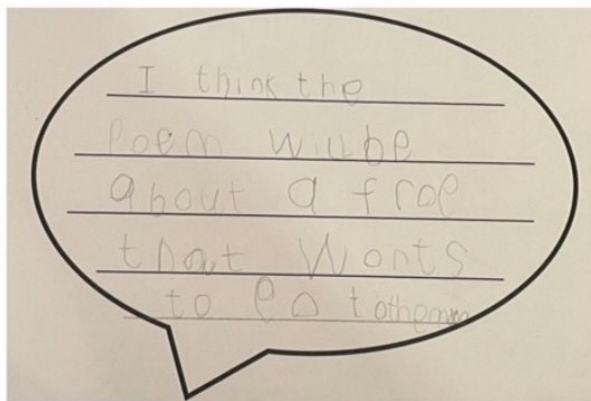 I think the
Poem will be
about a frog
that Wonts
to go to the